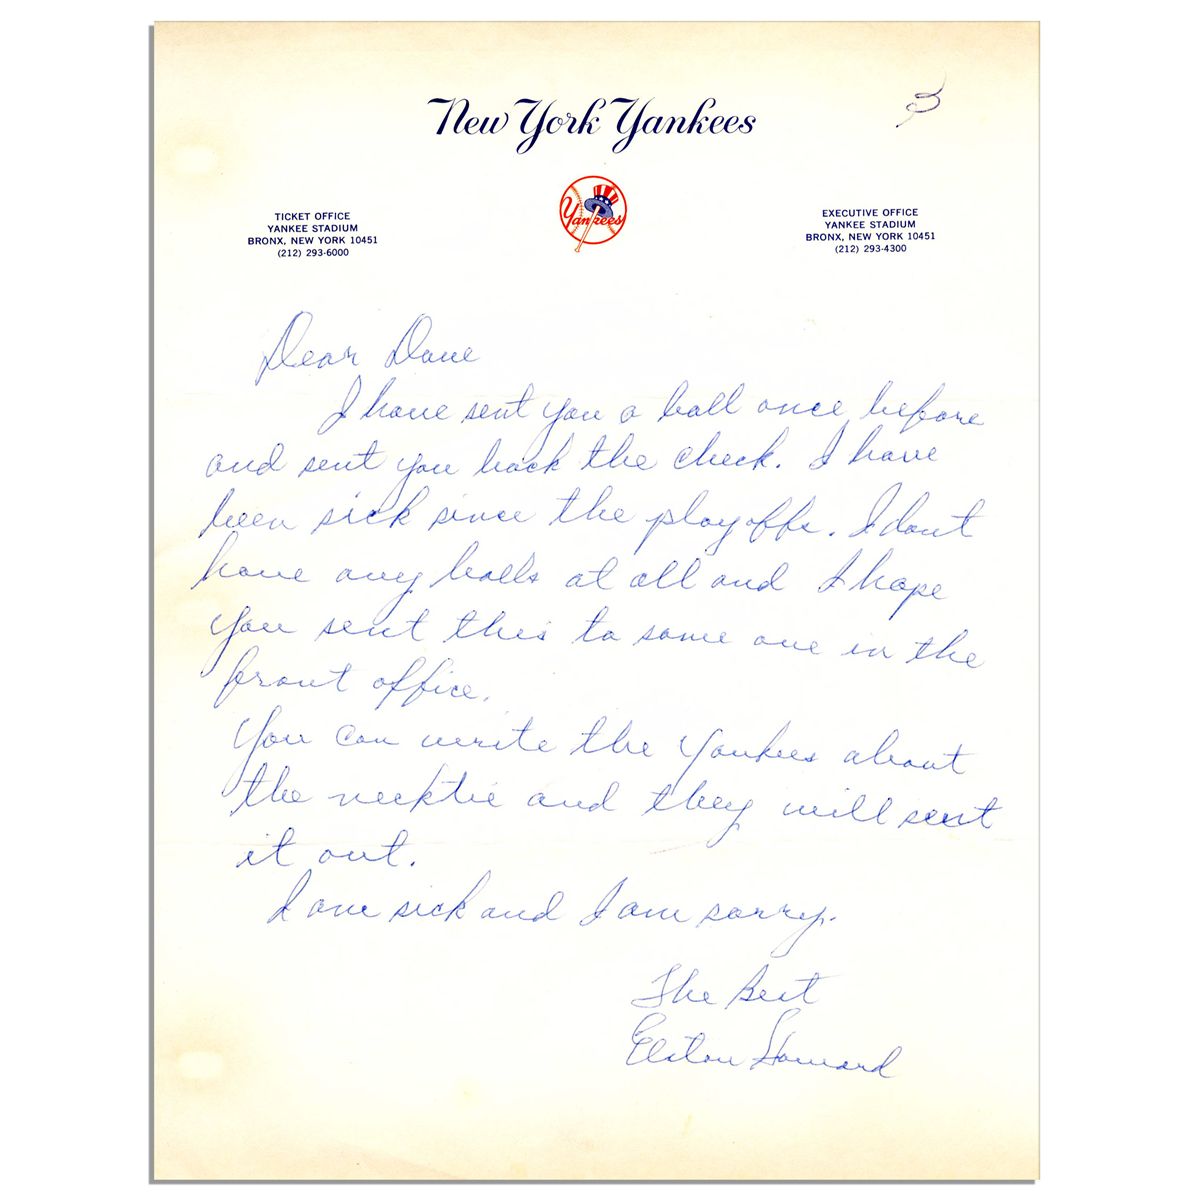 New York Yankees
3
Yankees
TICKET OFFICE
YANKEE STADIUM
BRONX, NEW YORK 10451
(212) 293-6000
EXECUTIVE OFFICE
YANKEE STADIUM
BRONX, NEW YORK 10451
(212) 293-4300
Dear Dave
I have sent you a ball once before
and sent you back the check. I have
been sick since the playoffs. I don't
have any balls at all and I hope
you sent this to some one in the
front office.
You can write the Yankees about
the necktie and they will sent
it out.
I am sick and I am sorry.
The Best
Elston Howard